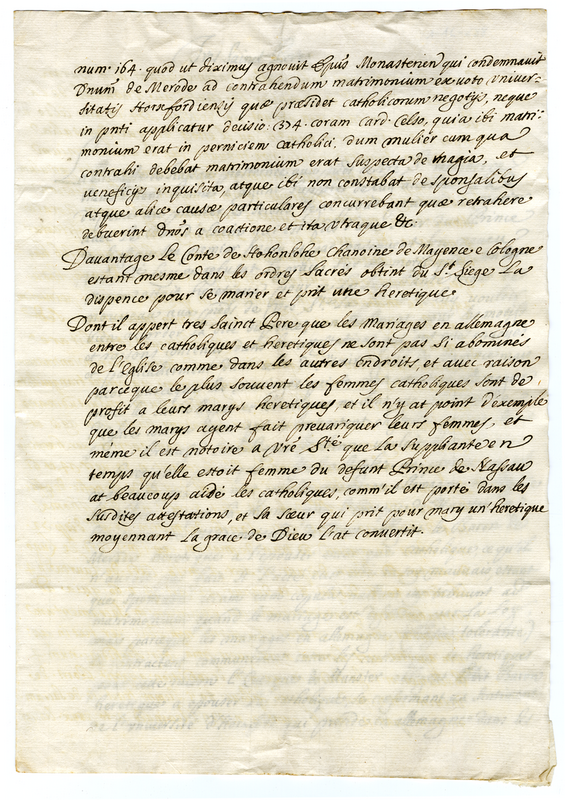 num. 164. quod ut diximus agnovit Epūs Monasterien qui condemnavit
Dnum de Merode ad contrahendum matrimonium ex voto Univer-
sitatis quæ præsidet catholicorum negotijs, neque
in pnti applicatur decisio. 374. coram card. Celso, quia ibi matri-
monium erat in perniciem catholici, dum mulier cum qua
contrahi debebat matrimonium erat suspecta de magia, et
veneficijs inquisita, atque ibi non constabat de sponsalibus
atque aliæ causæ particulares concurrebant quæ retrahere
debuerint dnos a coactione et ita utraque &c.
Davantage Le Conte de Hohenlohe Chanoine de Mayence e Cologne
estant mesme dans les ordres sacrès obtint du St. Siege La
dispence pour se marier et prit une heretique
Dont il appert tres Sainct Pere que les Mariages en allemagne
entre les catholiques et heretiques ne sont pas si abominés
de l'Eglise comme dans les autres endroits, et avec raison
parceque le plus souvent les femmes catholiques sont de
profit a leurs marys heretiques, et il n'y at point d'exemple
que les marys ayent fait prevariquer leurs femmes, et
méme il est notoire a Vrē Sté que La Suppliante en
temps qu'elle estoit femme du defunt Prince de Nassau
at beaucoup aidé les catholiques, comm'il est porté dans les
susdites attestations, et sa sœur qui prit pour mary un'heretique
moyennant la grace de Dieu l'at convertit.